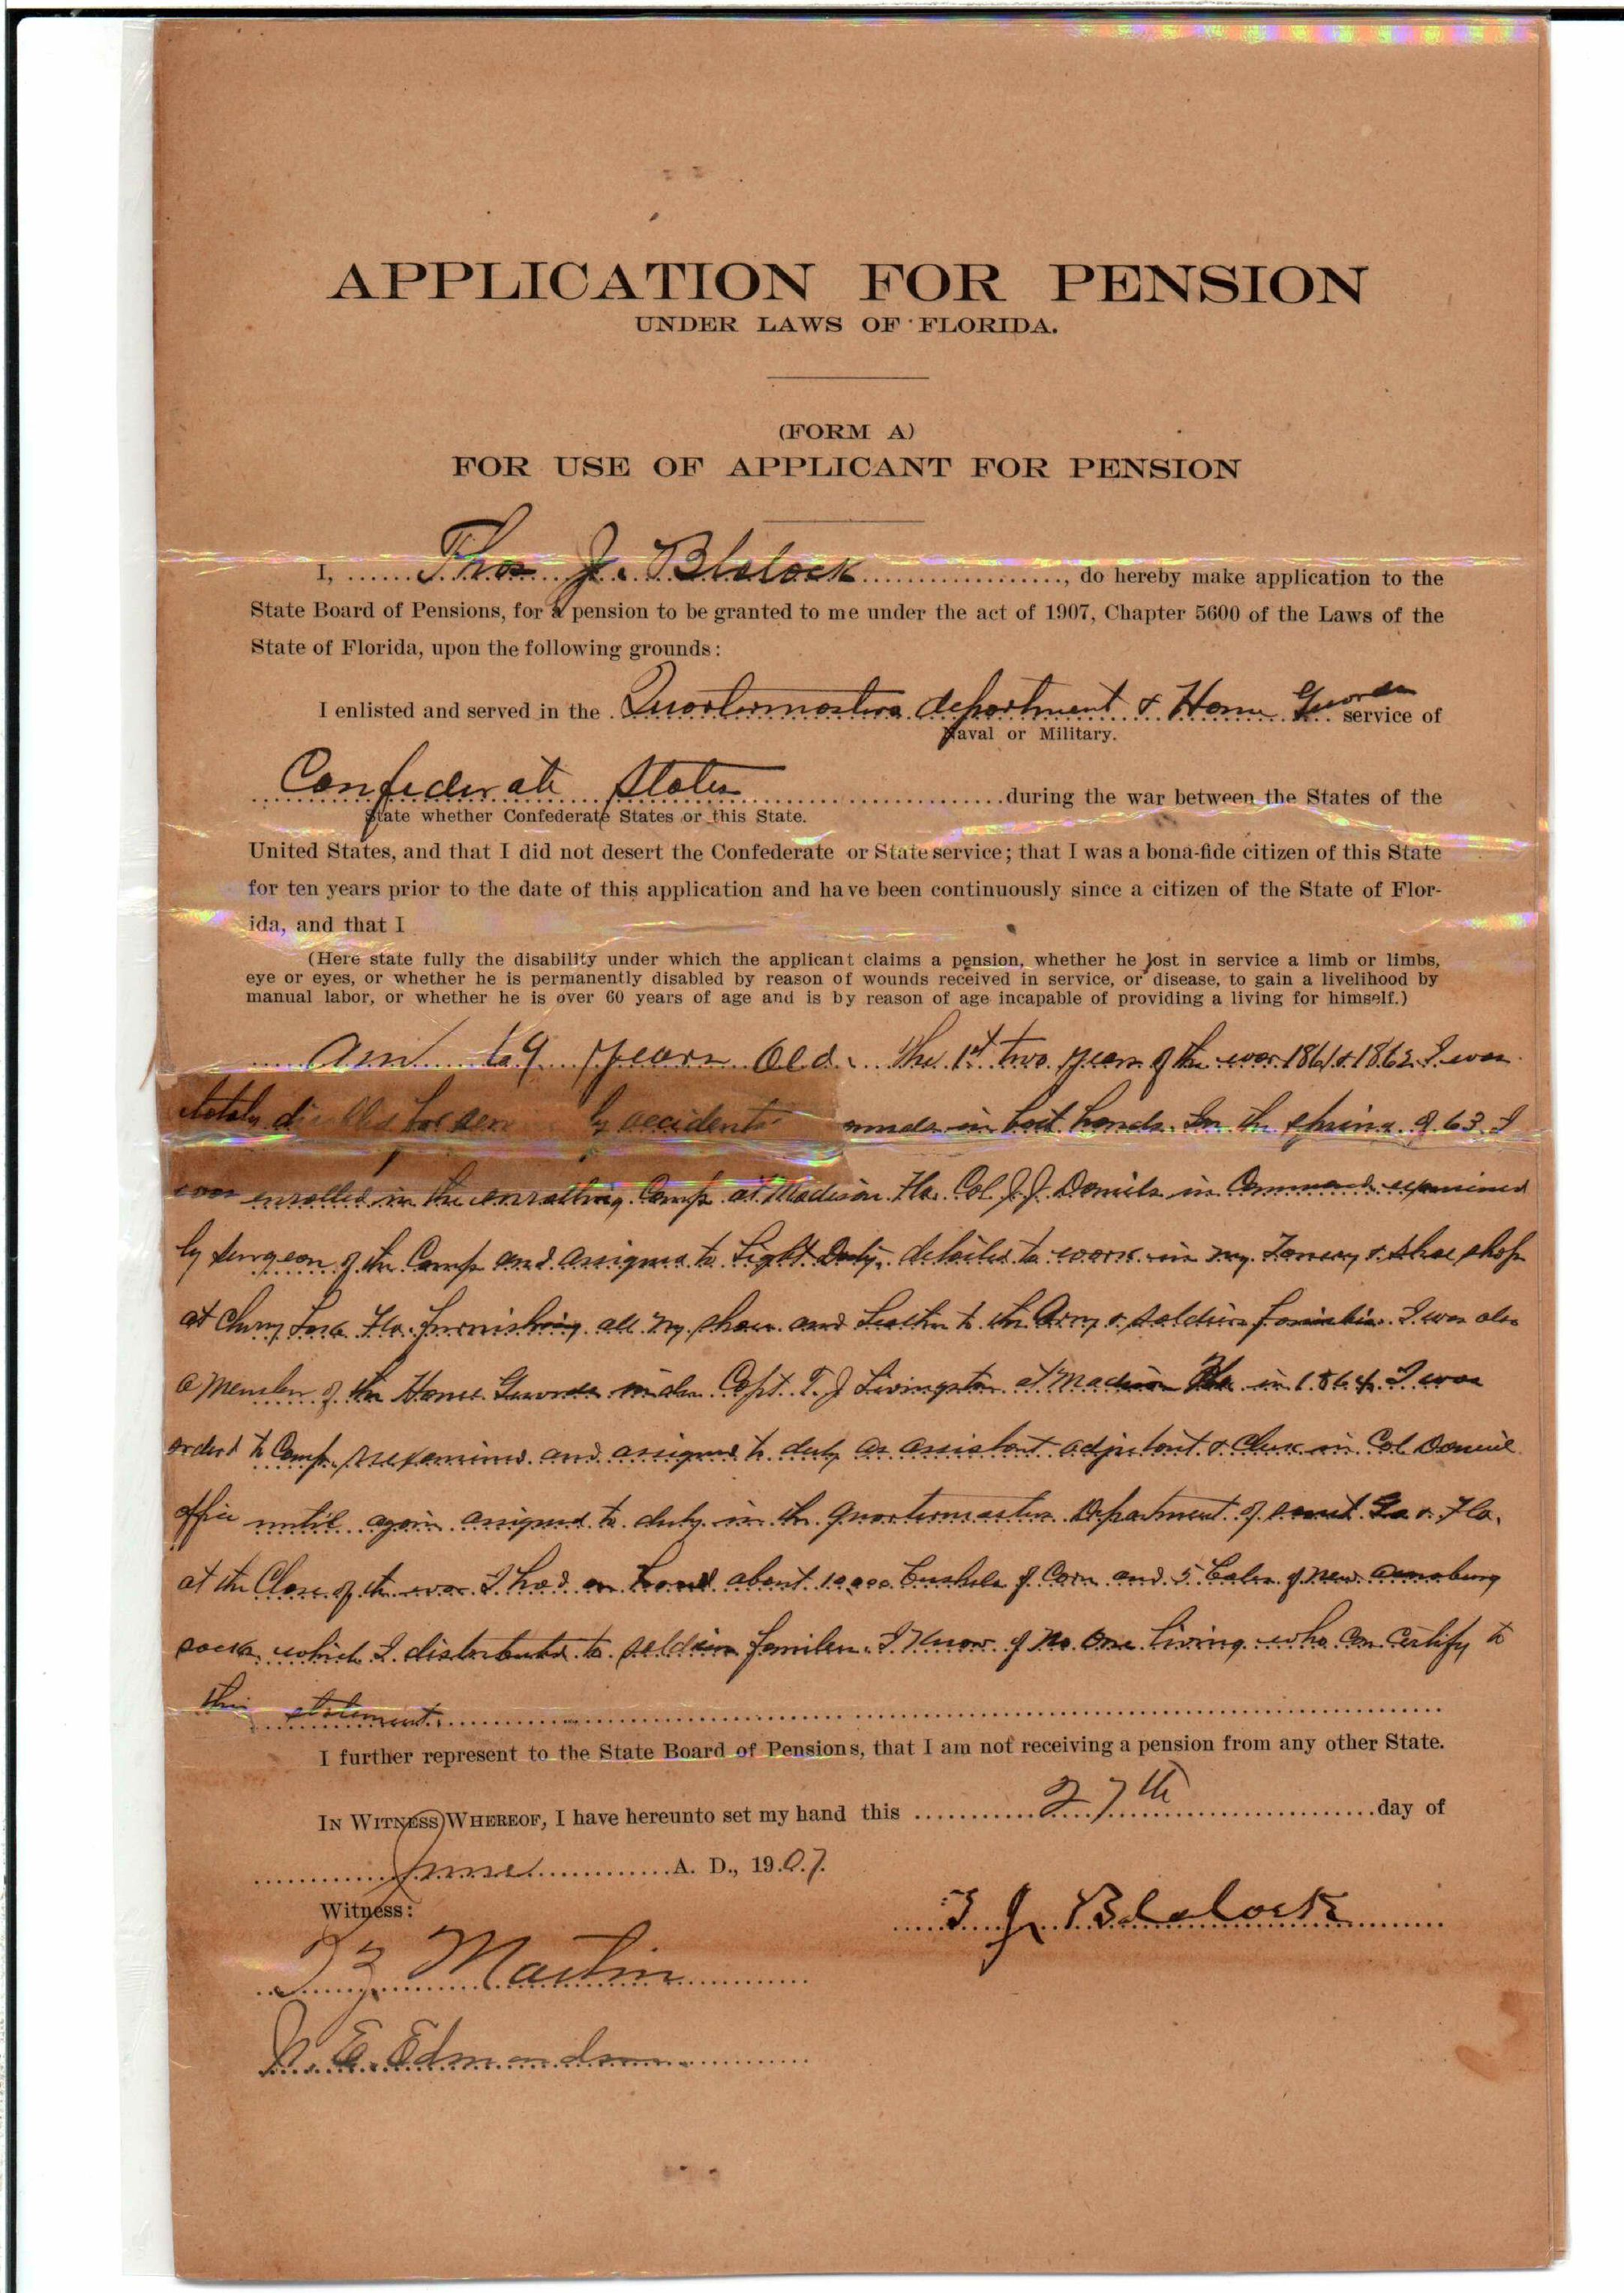 APPLICATION FOR PENSION
UNDER LAWS OF FLORIDA.
(FORM A)
FOR USE OF APPLICANT FOR PENSION
I, Thos J. Blalock, do hereby make application to the
State Board of Pensions, for a pension to be granted to me under the act of 1907, Chapter 5600 of the Laws of the
State of Florida, upon the following grounds:
I enlisted and served in the Quartermasters department & Home Guards service of
Naval or Military.
Confederate States during the war between the States of the
State whether Confederate States or this State.
United States, and that I did not desert the Confederate or State service; that I was a bona-fide citizen of this State
for ten years prior to the date of this application and have been continuously since a citizen of the State of Flor-
ida, and that I
(Here state fully the disability under which the applicant claims a pension, whether he lost in service a limb or limbs,
eye or eyes, or whether he is permanently disabled by reason of wounds received in service, or disease, to gain a livelihood by
manual labor, or whether he is over 60 years of age and is by reason of age incapable of providing a living for himself.)
Am 69 years old. The 1st two years of the war 1861 & 1862 I was
totaly disabled for ser by accident in both hands. In the spring of 63 I
was enrolled in the enrolling Camp at Madison Fla. Col J. J. Daniels in Command examined
by surgeon of the Camp and assigned to Light Duty, detailed to work in my Tanery & shoe shop
at Cherry Lake Fla. furnishing all my shoes and Leather to the Army & soldiers families. I was also
a member of the Home Guards under Capt. T. J Livingston at Madison Fla in 1864. I was
orderd to Camp, reexamined and assigned to duty as assistant adjutant & Clerk in Col Daniel
office until again assigned to duty in the Quartermasters Department of Ga & Fla.
at the Close of the war I had on hand about 10,000 bushels of Corn and 5 bales of new
sacks which I distributed to soldiers familes. I know of no one living who can certify to
this statement.
I further represent to the State Board of Pensions, that I am not receiving a pension from any other State.
IN WITNESS WHEREOF, I have hereunto set my hand this 27th day of
June A. D., 1907.
Witness: T J Blalock
Martin
E. Edmondson